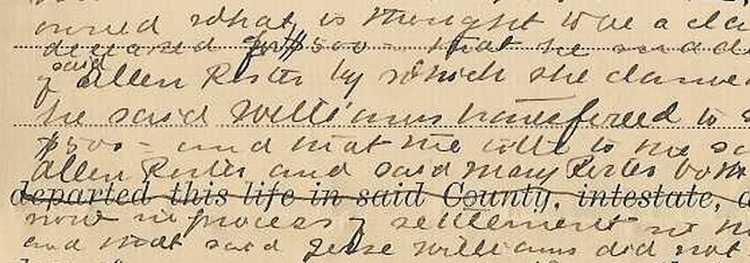 owned what is thought to be a cla
deceased for $500 - that he said
of said Allen Rester by which she claimed
he said Williams transferred to
$500 - and that the title to the
Allen Rester and said Mary Rester both
departed this life in said County, intestate,
now in process of settlement
and that said Jesse Williams did not